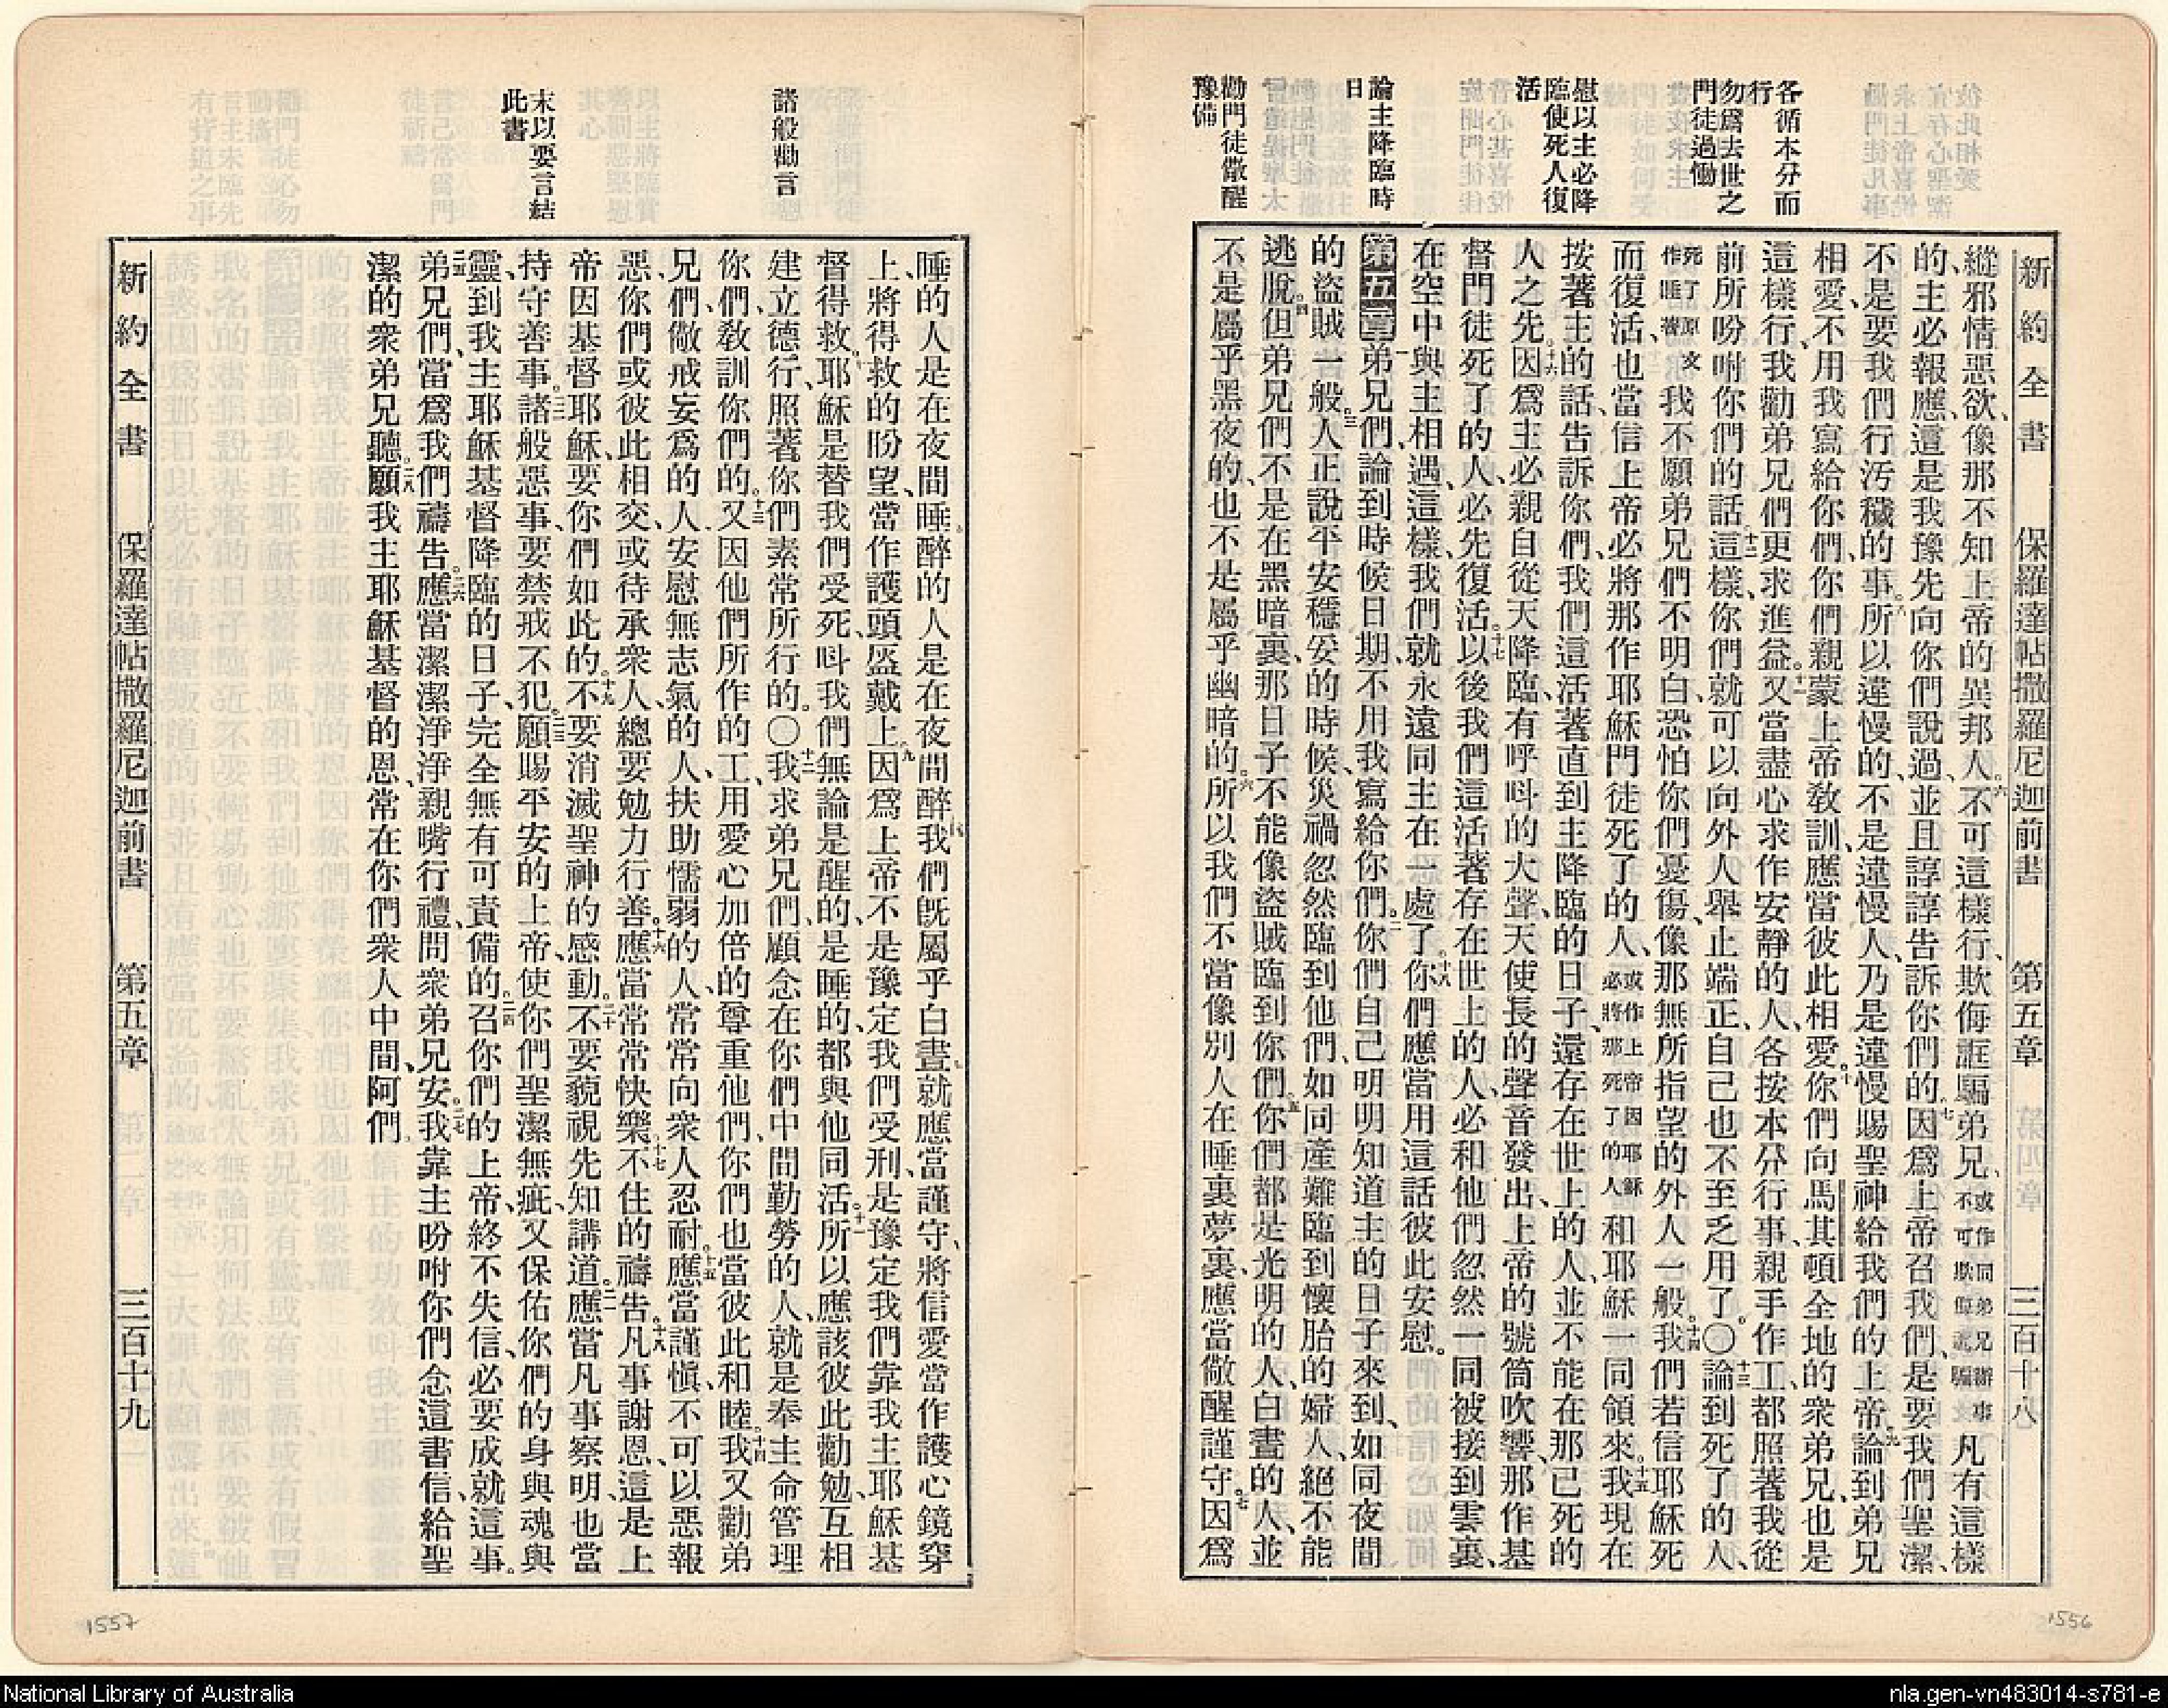 新約全書　保羅達帖撒羅尼迦前書　第五章　三百十八
各循本分而
行
勿爲去世之
門徒過慟
慰以主必降
臨使死人復
活
論主降臨時
日
勸門徒儆醒
豫備
縱邪情惡欲、像那不知上帝的異邦人。六不可這樣行、欺侮誆騙弟兄、或作同弟兄辦事不可欺侮誆騙凡有這樣
的、主必報應、這是我豫先向你們說過、並且諄諄告訴你們的。七因爲上帝召我們、是要我們聖潔、
不是要我們行污穢的事。八所以違慢的、不是違慢人、乃是違慢賜聖神給我們的上帝。九論到弟兄
相愛、不用我寫給你們、你們親蒙上帝敎訓、應當彼此相愛。十你們向馬其頓全地的衆弟兄、也是
這樣行、我勸弟兄們更求進益。十一又當盡心求作安靜的人、各按本分行事、親手作工、都照著我從
前所吩咐你們的話。十二這樣、你們就可以向外人舉止端正、自己也不至乏用了。〇十三論到死了的人、
死了原文作睡著我不願弟兄們不明白、恐怕你們憂傷、像那無所指望的外人一般。十四我們若信耶穌死
而復活、也當信上帝必將那作耶穌門徒死了的人、或作上帝因耶穌必將那死了的人和耶穌一同領來。十五我現在
按著主的話、告訴你們、我們這活著直到主降臨的日子、還存在世上的人、並不能在那已死的
人之先。十六因爲主必親自從天降臨、有呼呌的大聲、天使長的聲音發出、上帝的號筒吹響、那作基
督門徒死了的人、必先復活。十七以後我們這活著存在世上的人、必和他們忽然一同被接到雲裏、
在空中與主相遇、這樣、我們就永遠同主在一處了。十八你們應當用這話彼此安慰。
第五章一弟兄們、論到時候日期、不用我寫給你們。二你們自己明明知道主的日子來到、如同夜間
的盜賊一般。三人正說平安穩妥的時候、災禍忽然臨到他們、如同產難臨到懷胎的婦人、絕不能
逃脫。四但弟兄們、不是在黑暗裏、那日子不能像盜賊臨到你們。五你們都是光明的人、白晝的人、並
不是屬乎黑夜的、也不是屬乎幽暗的。六所以我們不當像別人在睡裏夢裏、應當儆醒謹守。七因爲
1556
諸般勸言
末以要言結
此書
睡的人是在夜間睡。醉的人是在夜間醉。八我們旣屬乎白晝。就應當謹守、將信愛當作護心鏡穿
上、將得救的盼望、當作護頭盔戴上。九因爲上帝不是豫定我們受刑、是豫定我們靠我主耶穌基
督得救。十耶穌是替我們受死、呌我們無論是醒的、是睡的、都與他同活。十一所以應該彼此勸勉、互相
建立德行、照著你們素常所行的。〇十二我求弟兄們、顧念在你們中間勤勞的人、就是奉主命管理
你們、敎訓你們的。十三又因他們所作的工、用愛心加倍的尊重他們、你們也當彼此和睦。十四我又勸弟
兄們、儆戒妄爲的人、安慰無志氣的人、扶助懦弱的人、常常向衆人忍耐。十五應當謹愼、不可以惡報
惡、你們或彼此相交、或待承衆人、總要勉力行善。十六應當常常快樂。十七不住的禱告。十八凡事謝恩、這是上
帝因基督耶穌、要你們如此的。十九不要消滅聖神的感動。二十不要藐視先知講道。二一應當凡事察明、也當
持守善事。二二諸般惡事、要禁戒不犯。二三願賜平安的上帝、使你們聖潔無疵、又保佑你們的身與魂與
靈、到我主耶穌基督降臨的日子、完全無有可責備的。二四召你們的上帝、終不失信、必要成就這事。
二五弟兄們、當爲我們禱告。二六應當潔潔淨淨親嘴行禮、問衆弟兄安。二七我靠主吩咐你們、念這書信、給聖
潔的衆弟兄聽。二八願我主耶穌基督的恩、常在你們衆人中間、阿們。
新約全書　保羅達帖撒羅尼迦前書　第五章　三百十九
1557
National Library of Australia
nla.gen-vn483014-s781-e